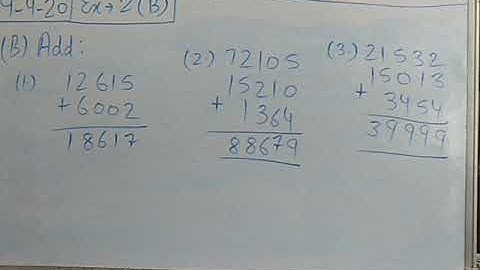 4-4-20 Ex → 2 (B)
(B) Add:
(1) 12615
+6002
18617
(2.) 72105
15210
+ 1364
88679
(3.) 21532
15013
+ 3454
39999